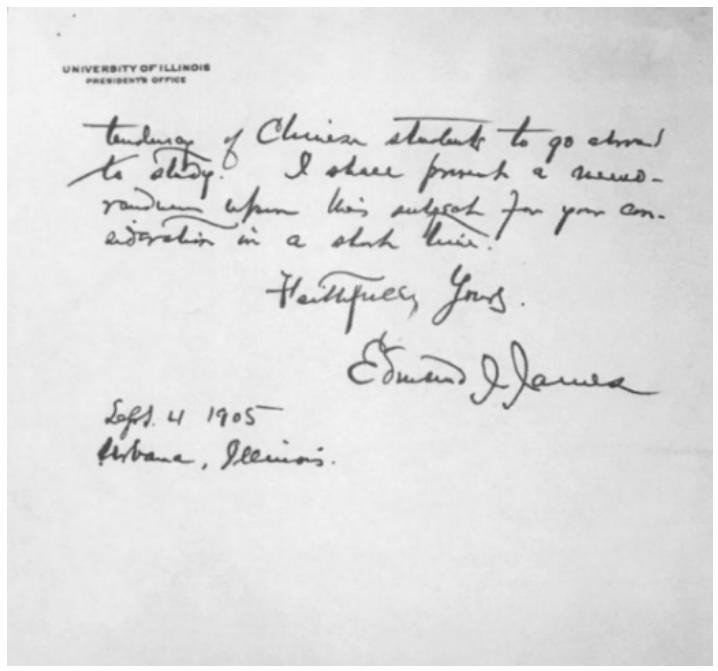 UNIVERSITY OF ILLINOIS
PRESIDENT'S OFFICE
tendency of Chinese students to go abroad
to study. I shall present a memo-
randum upon this subject for your con-
sideration in a short time.
Faithfully Yours.
Edmund J. James
Sept. 4 1905
Urbana, Illinois.